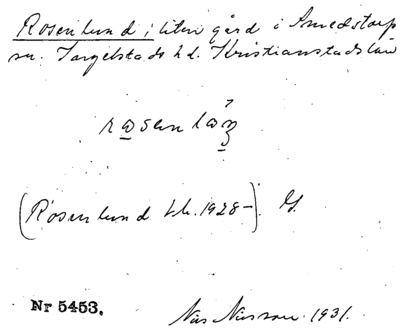 Rosenlund; liten gård i Smedstorp
sn. Järrestads hd. Kristianstads län
(Rosenlund kb. 1928–). G.
Nr 5453.
Nils Nilsson. 1931.